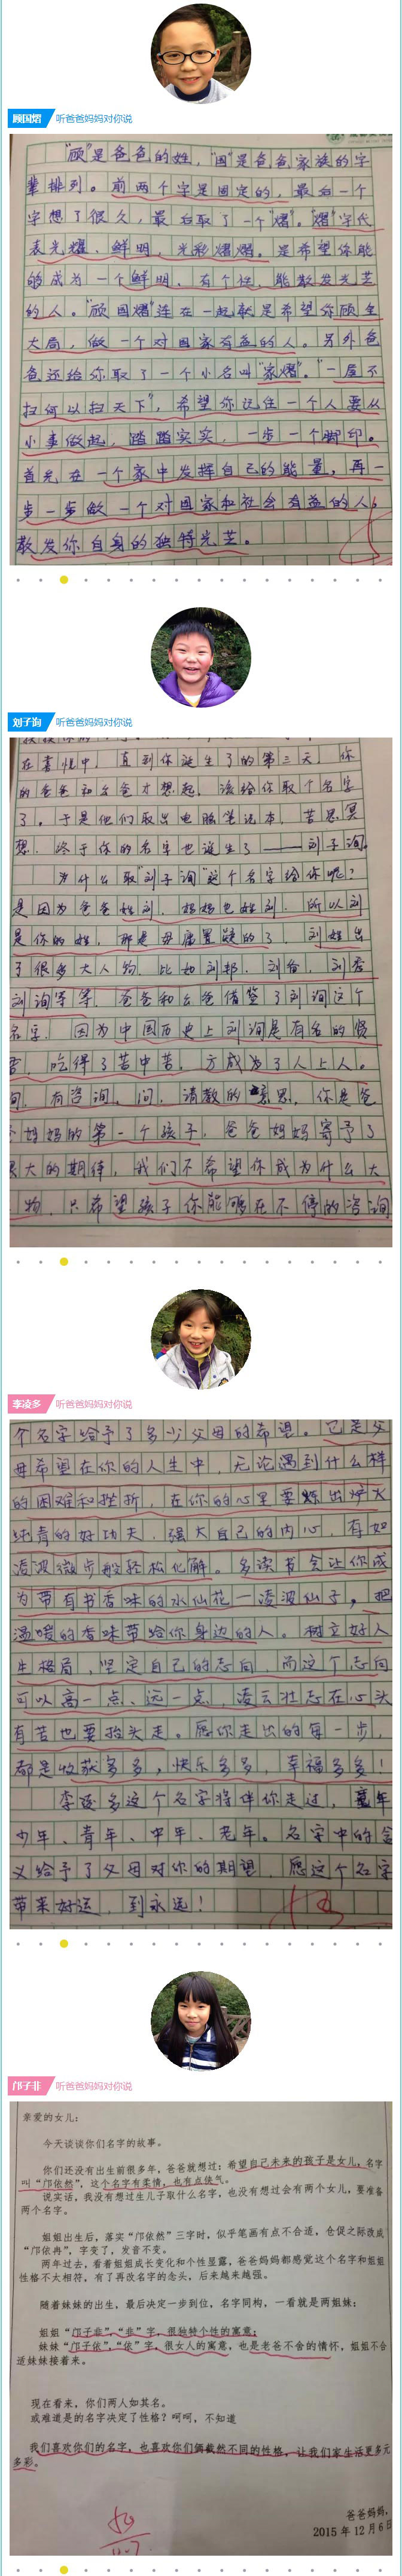 顾国熠 听爸爸妈妈对你说
"顾"是爸爸的姓,"国"是爸爸家族的字
辈排列。前两个字是固定的,最后一个
字想了很久,最后取了一个"熠"。"熠"字代
表光耀、鲜明,光彩熠熠。是希望你能
够成为一个鲜明、有个性、能散发光芒
的人。"顾国熠"连在一起就是希望你顾全
大局,做一个对国家有益的人。另外爸
爸还给你取了一个小名叫"家熠"。"一屋不
扫何以扫天下",希望你记住一个人要从
小事做起,踏踏实实,一步一个脚印。
首先在一个家中发挥自己的能量,再一
步一步做一个对国家和社会有益的人,
散发你自身的独特光芒。
刘子询 听爸爸妈妈对你说
在喜悦中,直到你诞生了的第三天,你
的爸爸和 爸才想起,该给你取个名字
了。于是他们取出电脑笔记本,苦思冥
想,终于你的名字也诞生了——刘子询。
为什么取"刘子询"这个名字给你呢?
是因为爸爸姓刘,妈妈也姓刘,所以刘
是你的姓,那是毋庸置疑的了。刘姓出
了很多大人物,比如刘邦、刘备、刘秀
刘询等等,爸爸和 爸借鉴了刘询这个
名字,因为中国历史上刘询是有名的贤
君,吃得了苦中苦,方成为了人上人。
询,有咨询、问、请教的意思,你是爸
爸妈妈的第一个孩子,爸爸妈妈寄予了
很大的期待,我们不希望你成为什么大
物,只希望孩子你能够在不停的咨询
李凌多 听爸爸妈妈对你说
个名字给予了多少父母的希望。它是父
母希望在你的人生中,无论遇到什么样
的困难和挫折,在你的心里要炼出炉火
纯青的好功夫,强大自己的内心,有如
凌波微步般轻松化解。多读书会让你成
为带有书香味的水仙花—凌波仙子,把
温暖的香味带给你身边的人。树立好人
生格局,坚定自己的志向,而这个志向
可以高一点、远一点,凌云壮志在心头
有苦也要抬头走。愿你走出的每一步,
都是收获多多,快乐多多,幸福多多!
李凌多这个名字将伴你走过,童年
少年、青年、中年、老年。名字中的含
义给予了父母对你的期望,愿这个名字
带来好运,到永远!
邝子非 听爸爸妈妈对你说
亲爱的女儿:
今天谈谈你们名字的故事。
你们还没有出生前很多年,爸爸就想过:希望自己未来的孩子是女儿,名字
叫"邝依然",这个名字有柔情,也有点侠气。
说实话,我没有想过生儿子取什么名字,也没有想过会有两个女儿,要准备
两个名字。
姐姐出生后,落实"邝依然"三字时,似乎笔画有点不合适,仓促之际改成
"邝依冉",字变了,发音不变。
两年过去,看着姐姐成长变化和个性显露,爸爸妈妈都感觉这个名字和姐姐
性格不太相符,有了再改名字的念头,后来越来越强。
随着妹妹的出生,最后决定一步到位,名字同构,一看就是两姐妹:
姐姐"邝子非","非"字,很独特个性的寓意;
妹妹"邝子依","依"字,很女人的寓意,也是老爸不舍的情怀,姐姐不合
适妹妹接着来。
现在看来,你们两人如其名。
或难道是的名字决定了性格?呵呵,不知道
我们喜欢你们的名字,也喜欢你们俩截然不同的性格,让我们家生活更多元
多彩。
爸爸妈妈,
2015年12月6日